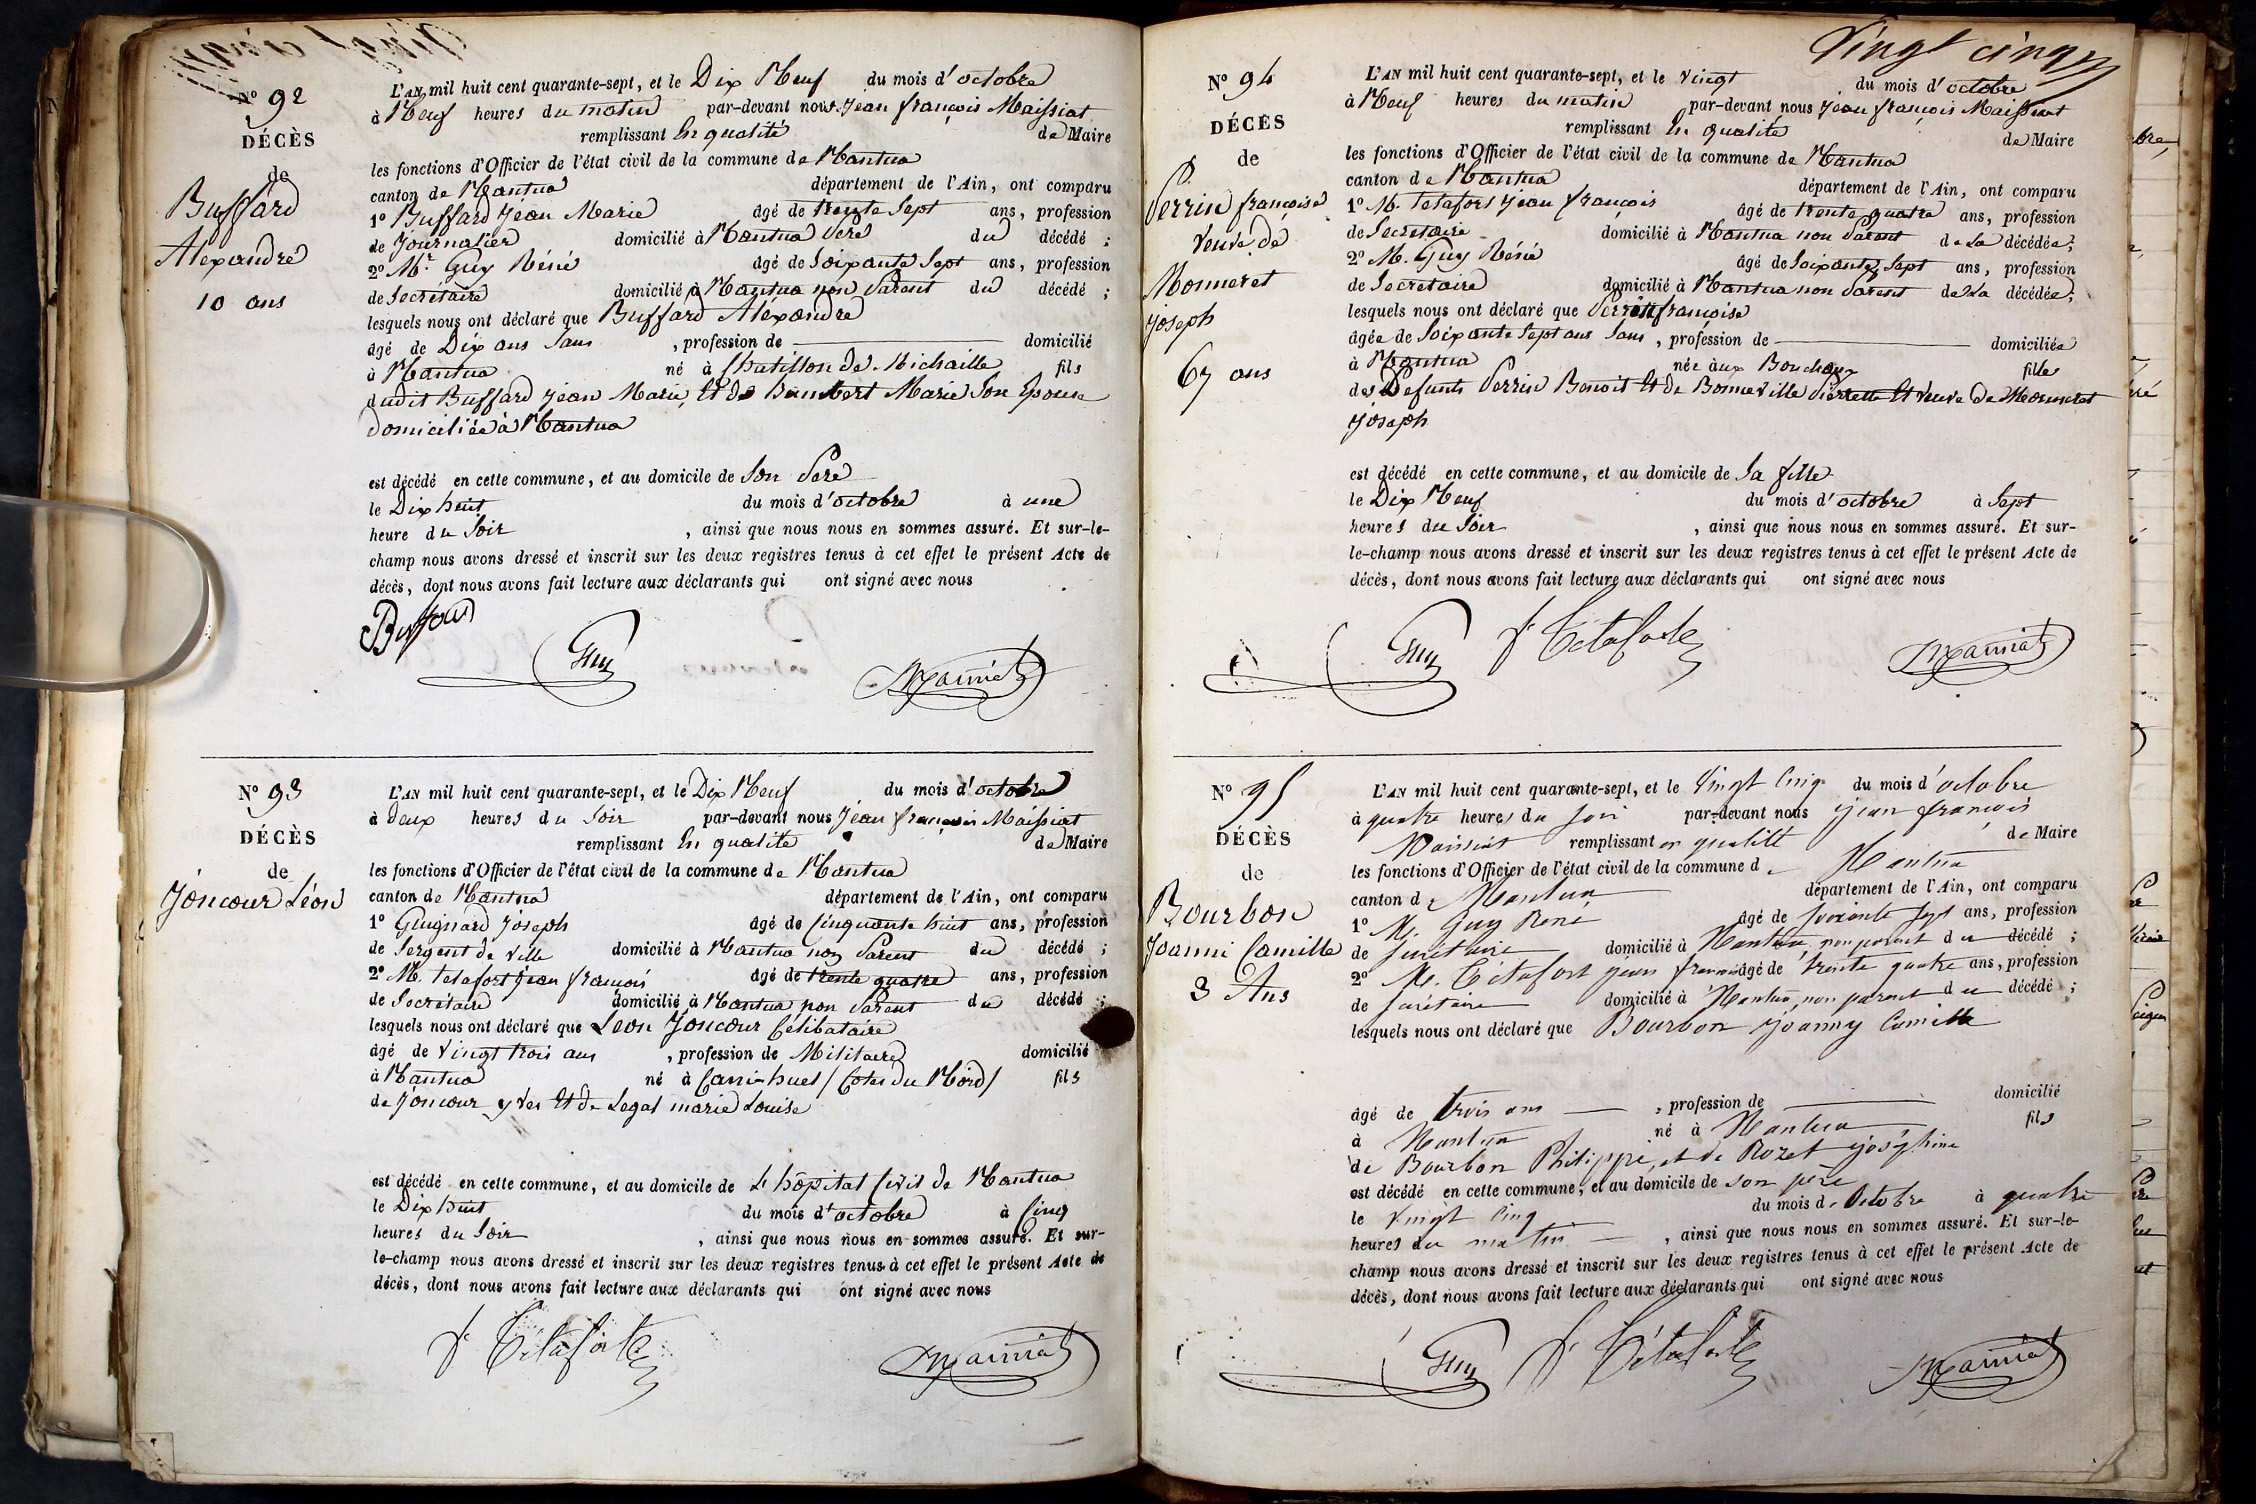 Nº 92
DÉCÈS
de
Buffard
Alexandre
10 ans
L'AN mil huit cent quarante-sept, et le Dix Neuf du mois d'octobre
à Neuf heures du matin par-devant nous Jean françois Maissiat
remplissant En qualité de Maire
les fonctions d'Officier de l'état civil de la commune de Nantua
canton de Nantua département de l'Ain, ont comparu
1º Buffard Jean Marie âgé de trente Sept ans, profession
de Journalier domicilié à Nantua Père du décédé ;
2º Mr. Guy Réné âgé de Soixante Sept ans, profession
de Secrétaire domicilié à Nantua non Parent du décédé ;
lesquels nous ont déclaré que Buffard Alexandre
âgé de Dix ans Sans , profession de domicilié
à Nantua né à Chatillon de Michaille fils
dudit Buffard Jean Marie, Et de Humbert Marie Son Epouse
Domiciliée à Nantua
est décédé en cette commune, et au domicile de Son Père
le Dix huit du mois d'octobre à une
heure du Soir , ainsi que nous nous en sommes assuré. Et sur-le-
champ nous avons dressé et inscrit sur les deux registres tenus à cet effet le présent Acte de
décès, dont nous avons fait lecture aux déclarants qui ont signé avec nous
Buffard
Guy Maissiat
Nº 93
DÉCÈS
de
Joncour Léon
L'AN mil huit cent quarante-sept, et le Dix Neuf du mois d'octobre
à Deux heures du Soir par-devant nous Jean françois Maissiat
remplissant En qualité de Maire
les fonctions d'Officier de l'état civil de la commune de Nantua
canton de Nantua département de l'Ain, ont comparu
1º Guignard Joseph âgé de Cinquante huit ans, profession
de Sergent de Ville domicilié à Nantua non Parent du décédé ;
2º M. Tetafort Jean françois âgé de trente quatre ans, profession
de Secrétaire domicilié à Nantua non Parent du décédé ;
lesquels nous ont déclaré que Léon Joncour Célibataire
âgé de Vingt trois ans , profession de Militaire domicilié
à Nantua né à Canihuel / Cotes du Nord / fils
de Joncour yves Et de Legal marie Louise
est décédé en cette commune, et au domicile de L'hôpital Civil de Nantua
le Dix huit du mois d'octobre à Cinq
heures du Soir , ainsi que nous nous en sommes assuré. Et sur-
le-champ nous avons dressé et inscrit sur les deux registres tenus à cet effet le présent Acte de
décès, dont nous avons fait lecture aux déclarants qui ont signé avec nous
Tétafort Maissiat
Vingt cinq
Nº 94
DÉCÈS
de
Perrin françoise
Veuve de
Monneret
Joseph
67 ans
L'AN mil huit cent quarante-sept, et le Vingt du mois d'octobre
à Neuf heures du matin par-devant nous Jean françois Maissiat
remplissant En qualité de Maire
les fonctions d'Officier de l'état civil de la commune de Nantua
canton de Nantua département de l'Ain, ont comparu
1º M. Tetafort Jean françois âgé de trente quatre ans, profession
de Secretaire domicilié à Nantua non Parent de La décédée ;
2º M. Guy Réné âgé de Soixante Sept ans, profession
de Secretaire domicilié à Nantua non Parent de La décédée ;
lesquels nous ont déclaré que Perrin françoise
âgée de Soixante Sept ans Sans , profession de domiciliée
à Nantua née aux Bouchoux fille
des Defunts Perrin Benoit Et de Bonneville Pierrette Et Veuve de Monneret
Joseph
est décédé en cette commune, et au domicile de Sa fille
le Dix Neuf du mois d'octobre à Sept
heures du Soir , ainsi que nous nous en sommes assuré. Et sur-
le-champ nous avons dressé et inscrit sur les deux registres tenus à cet effet le présent Acte de
décès, dont nous avons fait lecture aux déclarants qui ont signé avec nous
Guy Tétafort Maissiat
Nº 95
DÉCÈS
de
Bourbon
Joanni Camille
3 Ans
L'AN mil huit cent quarante-sept, et le Vingt Cinq du mois d'octobre
à quatre heures du soir par-devant nous jean françois
Maissiat remplissant en qualité de Maire
les fonctions d'Officier de l'état civil de la commune de Nantua
canton de Nantua département de l'Ain, ont comparu
1º M. Guy René âgé de soixante sept ans, profession
de secrétaire domicilié à Nantua non parent du décédé ;
2º M. Tétafort jean françois âgé de trente quatre ans, profession
de secrétaire domicilié à Nantua, non parent du décédé ;
lesquels nous ont déclaré que Bourbon joanny Camille
âgé de trois ans , profession de domicilié
à Nantua né à Nantua fils
de Bourbon Philippe, et de Rozet joséphine
est décédé en cette commune, et au domicile de son père
le vingt cinq du mois d'octobre à quatre
heures du matin , ainsi que nous nous en sommes assuré. Et sur-le-
champ nous avons dressé et inscrit sur les deux registres tenus à cet effet le présent Acte de
décès, dont nous avons fait lecture aux déclarants qui ont signé avec nous
Guy Tétafort Maissiat